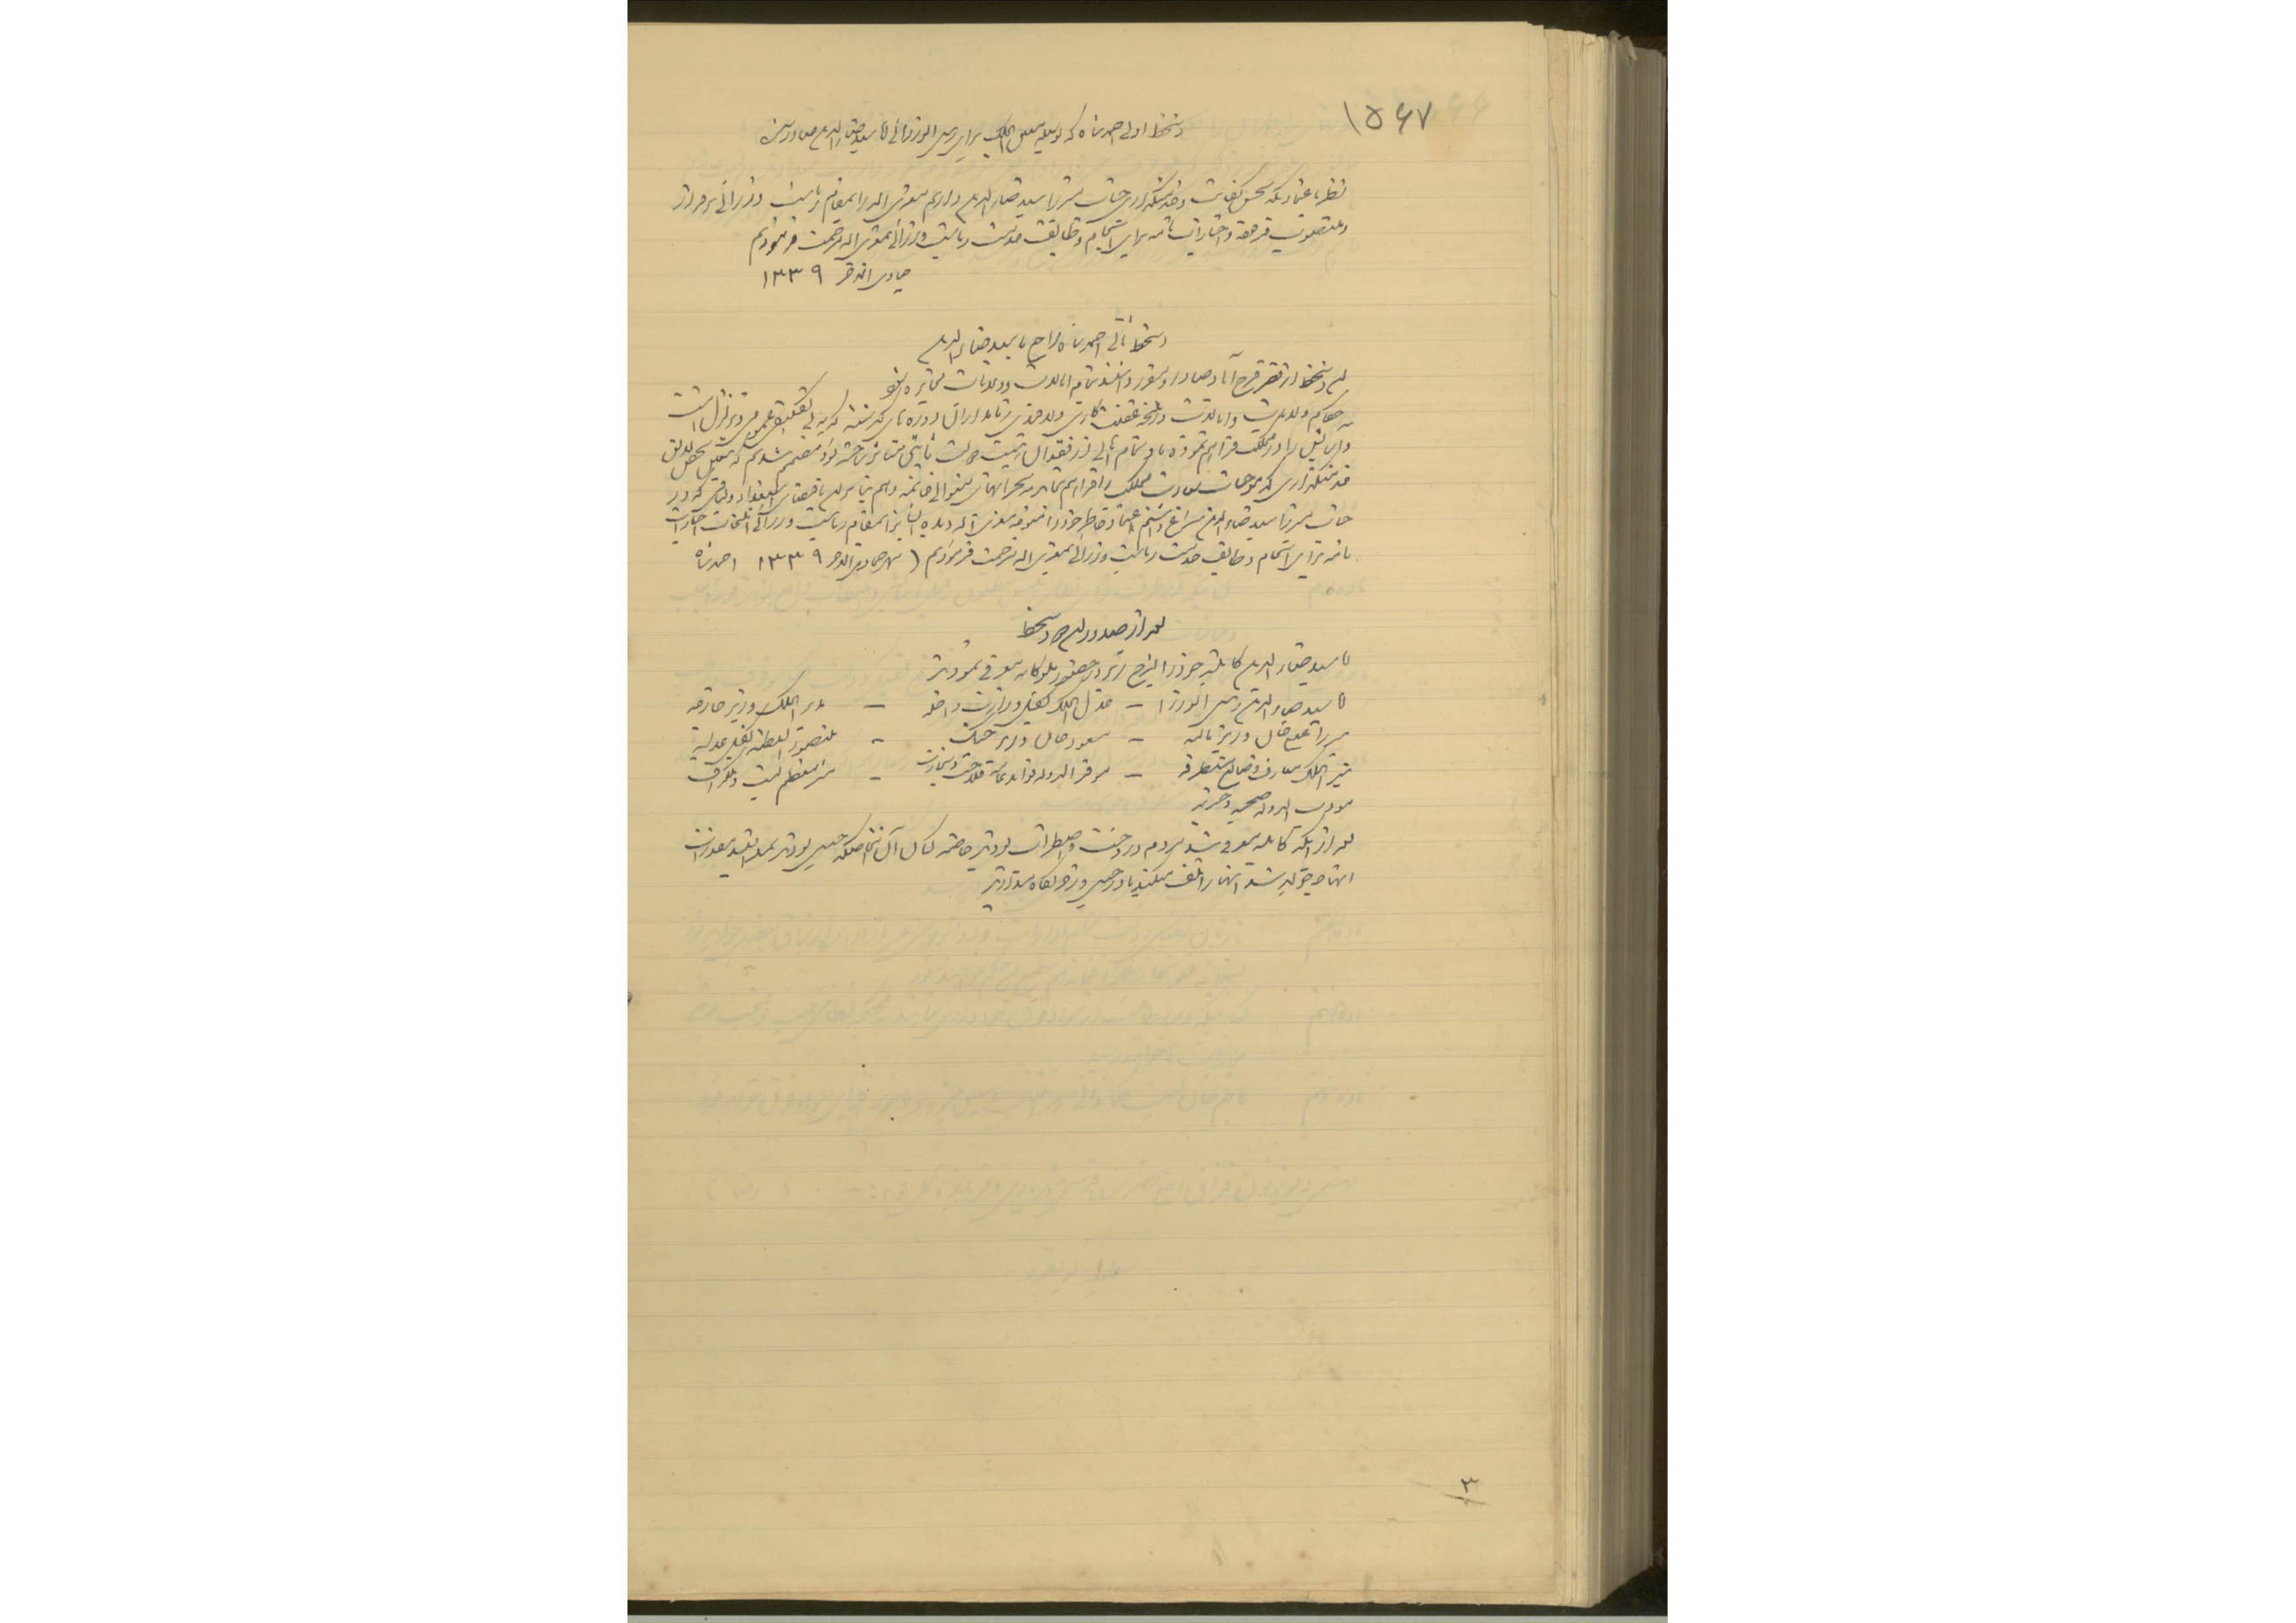 ۱۵۶۷
دستخط اولی احمد شاه که بوسیله معین الملک برای رئیس الوزرائی آقا سید ضیاء الدین صادر شده
نظر باعتمادیکه بحسن کفایت و خدمتگذاری جناب میرزا سید ضیاء الدین داریم معزی الیه را بمقام ریاست وزرائی برقرار
و منصوب فرموده و اختیارات تامه برای انجام وظایف خدمت ریاست وزرائی بمعزی الیه مرحمت فرمودیم
جمادی الاخر ۱۳۳۹
دستخط ثانی احمد شاه راجع با سید ضیاء الدین
این دستخط از قصر فرح آباد صادر و مقرر داشتند بتمام ایالات و ولایات مخابره شود
حکام ولایات و ایالات در نتیجه غفلت کاری و لاقیدی زمامداران دوره های گذشته که بی تکلیفی عمومی و تزلزل امنیت
و آسایش را در مملکت فراهم نموده ما و تمام اهالی را از فقدان هیئت دولت ثابتی متاثر ساخته بود مصمم شدیم که بتعیین شخص لایق
خدمتگذاری که موجبات سعادت مملکت را فراهم نماید به بحرانهای متوالی خاتمه دهیم بنابر این باقتضای استعداد و لیاقتی که در
جناب میرزا سید ضیاء الدین سراغ داشتیم اعتماد خاطر خود را متوجه معزی الیه دیده ایشان را بمقام ریاست وزرائی انتخاب و اختیارات
تامه برای انجام وظایف خدمت ریاست وزرائی بمعزی الیه مرحمت فرمودیم (شهر جمادی الاخر ۱۳۳۹ احمد شاه
بعد از صدور این دستخط
آقا سید ضیاء الدین کابینه خود را بشرح زیر در حضور ملوکانه معرفی نمودند
آقا سید ضیاء الدین رئیس الوزرا – عدل الملک کفیل وزارت داخله – مدیر الملک وزیر خارجه
میرزا عیسی خان وزیر مالیه – مسعود خان وزیر جنگ – منصور السلطنه کفیل عدلیه
نیر الملک معارف و صنایع مستظرفه – موقر الدوله فواید عامه فلاحت و تجارت – مشیر معظم پست و تلگراف
مودب الدوله صحیه و خیریه
بعد از آنکه کابینه معرفی شد مردم در وحشت و اضطراب بودند خاصه کسان آن اشخاصیکه حبس بودند
آنها چه خواهد شد آنها را تلف میکنند یا در حبس و توقیفگاه
۳